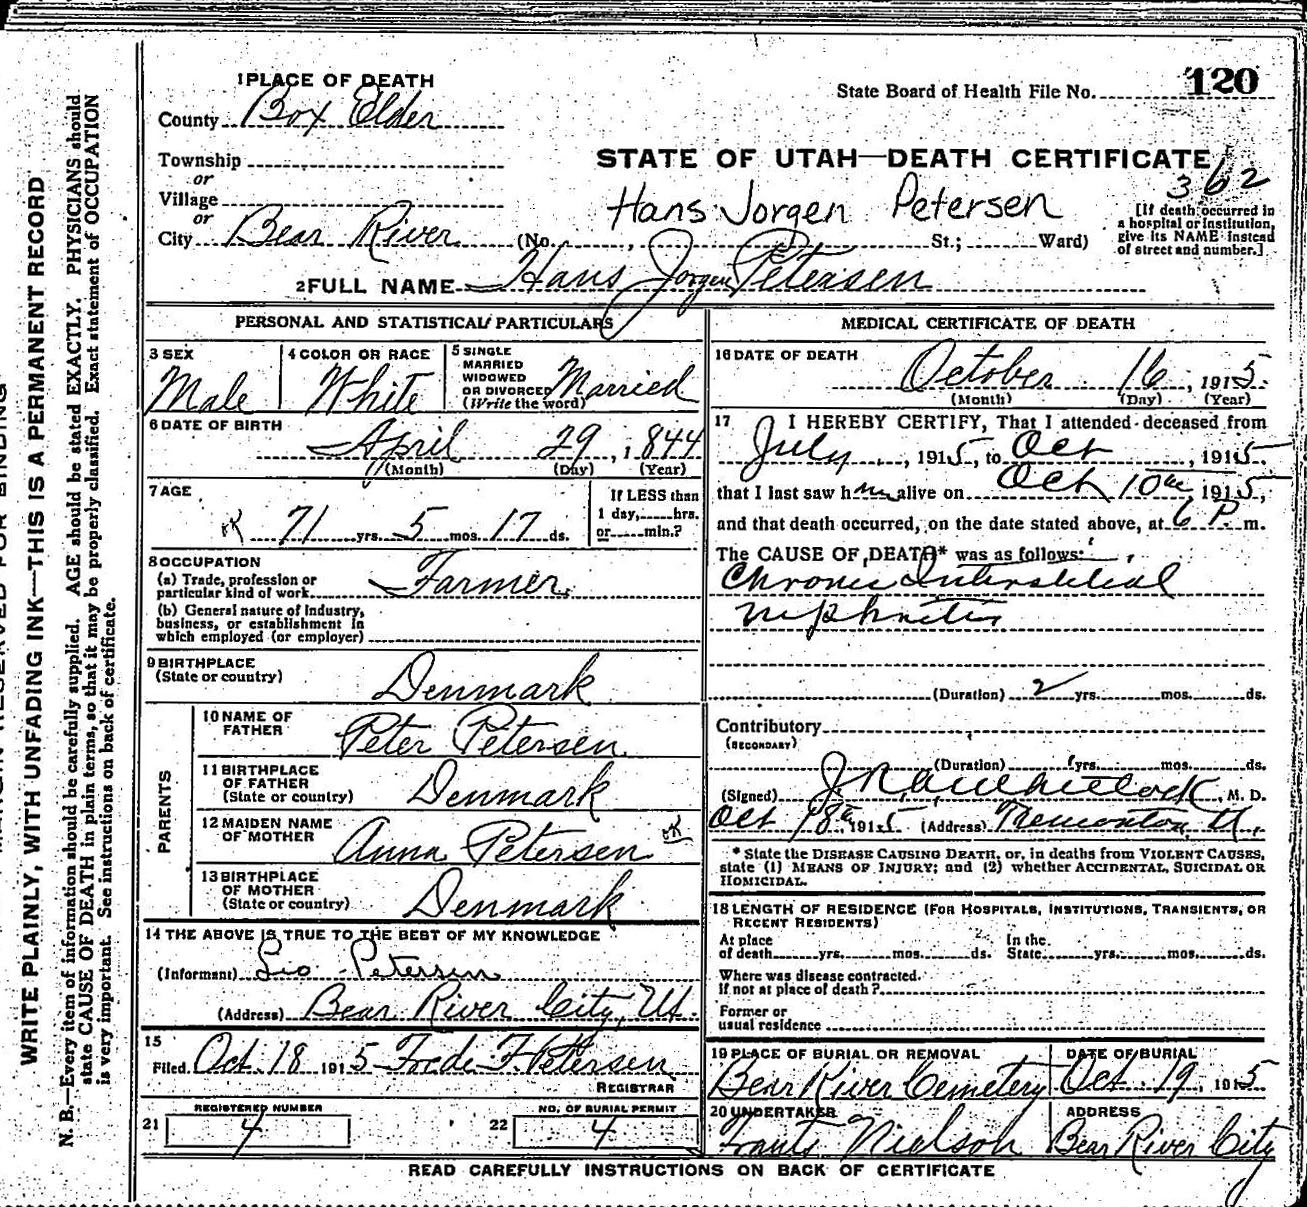 WRITE PLAINLY, WITH UNFADING INK—THIS IS A PERMANENT RECORD
N. B.—Every item of information should be carefully supplied. AGE should be stated EXACTLY. PHYSICIANS should
state CAUSE OF DEATH in plain terms, so that it may be properly classified. Exact statement of OCCUPATION
is very important. See instructions on back of certificate.
1 PLACE OF DEATH
County Box Elder
Township
or
Village
or
City Bear River (No. , St.; Ward)
State Board of Health File No. 120
STATE OF UTAH—DEATH CERTIFICATE
362
Hans Jorgen Petersen
[If death occurred in
a hospital or institution,
give its NAME instead
of street and number.]
2 FULL NAME Hans Jorgen Petersen
PERSONAL AND STATISTICAL PARTICULARS
3 SEX
Male
4 COLOR OR RACE
White
5 SINGLE
MARRIED
WIDOWED
OR DIVORCED
(Write the word)
Married
6 DATE OF BIRTH
April 29, 1844
(Month) (Day) (Year)
7 AGE
OK 71 yrs. 5 mos. 17 ds.
If LESS than
1 day, hrs.
or min.?
8 OCCUPATION
(a) Trade, profession or
particular kind of work Farmer
(b) General nature of industry,
business, or establishment in
which employed (or employer)
9 BIRTHPLACE
(State or country)
Denmark
PARENTS
10 NAME OF
FATHER
Peter Petersen
11 BIRTHPLACE
OF FATHER
(State or country)
Denmark
12 MAIDEN NAME
OF MOTHER
Anna Petersen OK
13 BIRTHPLACE
OF MOTHER
(State or country)
Denmark
14 THE ABOVE IS TRUE TO THE BEST OF MY KNOWLEDGE
(Informant) Leo Petersen
(Address) Bear River City, Ut.
15
Filed Oct. 18 1915 Frede F. Petersen
REGISTRAR
REGISTERED NUMBER
21 4
NO. OF BURIAL PERMIT
22 4
MEDICAL CERTIFICATE OF DEATH
16 DATE OF DEATH
October 16, 1915.
(Month) (Day) (Year)
17 I HEREBY CERTIFY, That I attended deceased from
July , 1915, to Oct , 1915,
that I last saw him alive on Oct 10th 1915,
and that death occurred, on the date stated above, at 6 P. m.
The CAUSE OF DEATH* was as follows:
Chronic Interstitial
nephritis
(Duration) 2 yrs. mos. ds.
Contributory
(SECONDARY)
(Duration) yrs. mos. ds.
(Signed) Whitlock, M. D.
Oct 18th, 1915 (Address) Tremonton, U.
* State the DISEASE CAUSING DEATH, or, in deaths from VIOLENT CAUSES,
state (1) MEANS OF INJURY; and (2) whether ACCIDENTAL, SUICIDAL OR
HOMICIDAL.
18 LENGTH OF RESIDENCE (FOR HOSPITALS, INSTITUTIONS, TRANSIENTS, OR
RECENT RESIDENTS)
At place
of death yrs. mos. ds. In the
State yrs. mos. ds.
Where was disease contracted.
If not at place of death?
Former or
usual residence
19 PLACE OF BURIAL OR REMOVAL
Bear River Cemetery
DATE OF BURIAL
Oct. 19, 1915
20 UNDERTAKER
Nielson
ADDRESS
Bear River City
READ CAREFULLY INSTRUCTIONS ON BACK OF CERTIFICATE